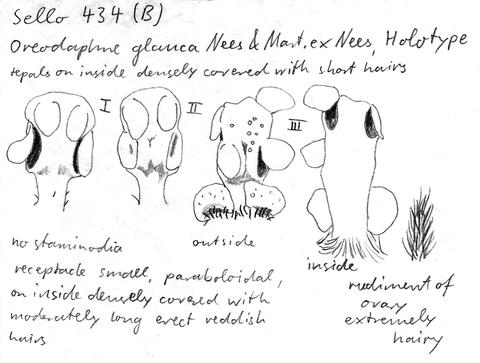 Sello 434 (B)
Oreodaphne glauca Nees & Mart. ex Nees, Holotype
tepals on inside densely covered with short hairs
I II III
no staminodia
outside
inside
receptacle small, paraboloidal,
on inside densely covered with
moderately long erect reddish
hairs
rudiment of
ovary
extremely
hairy